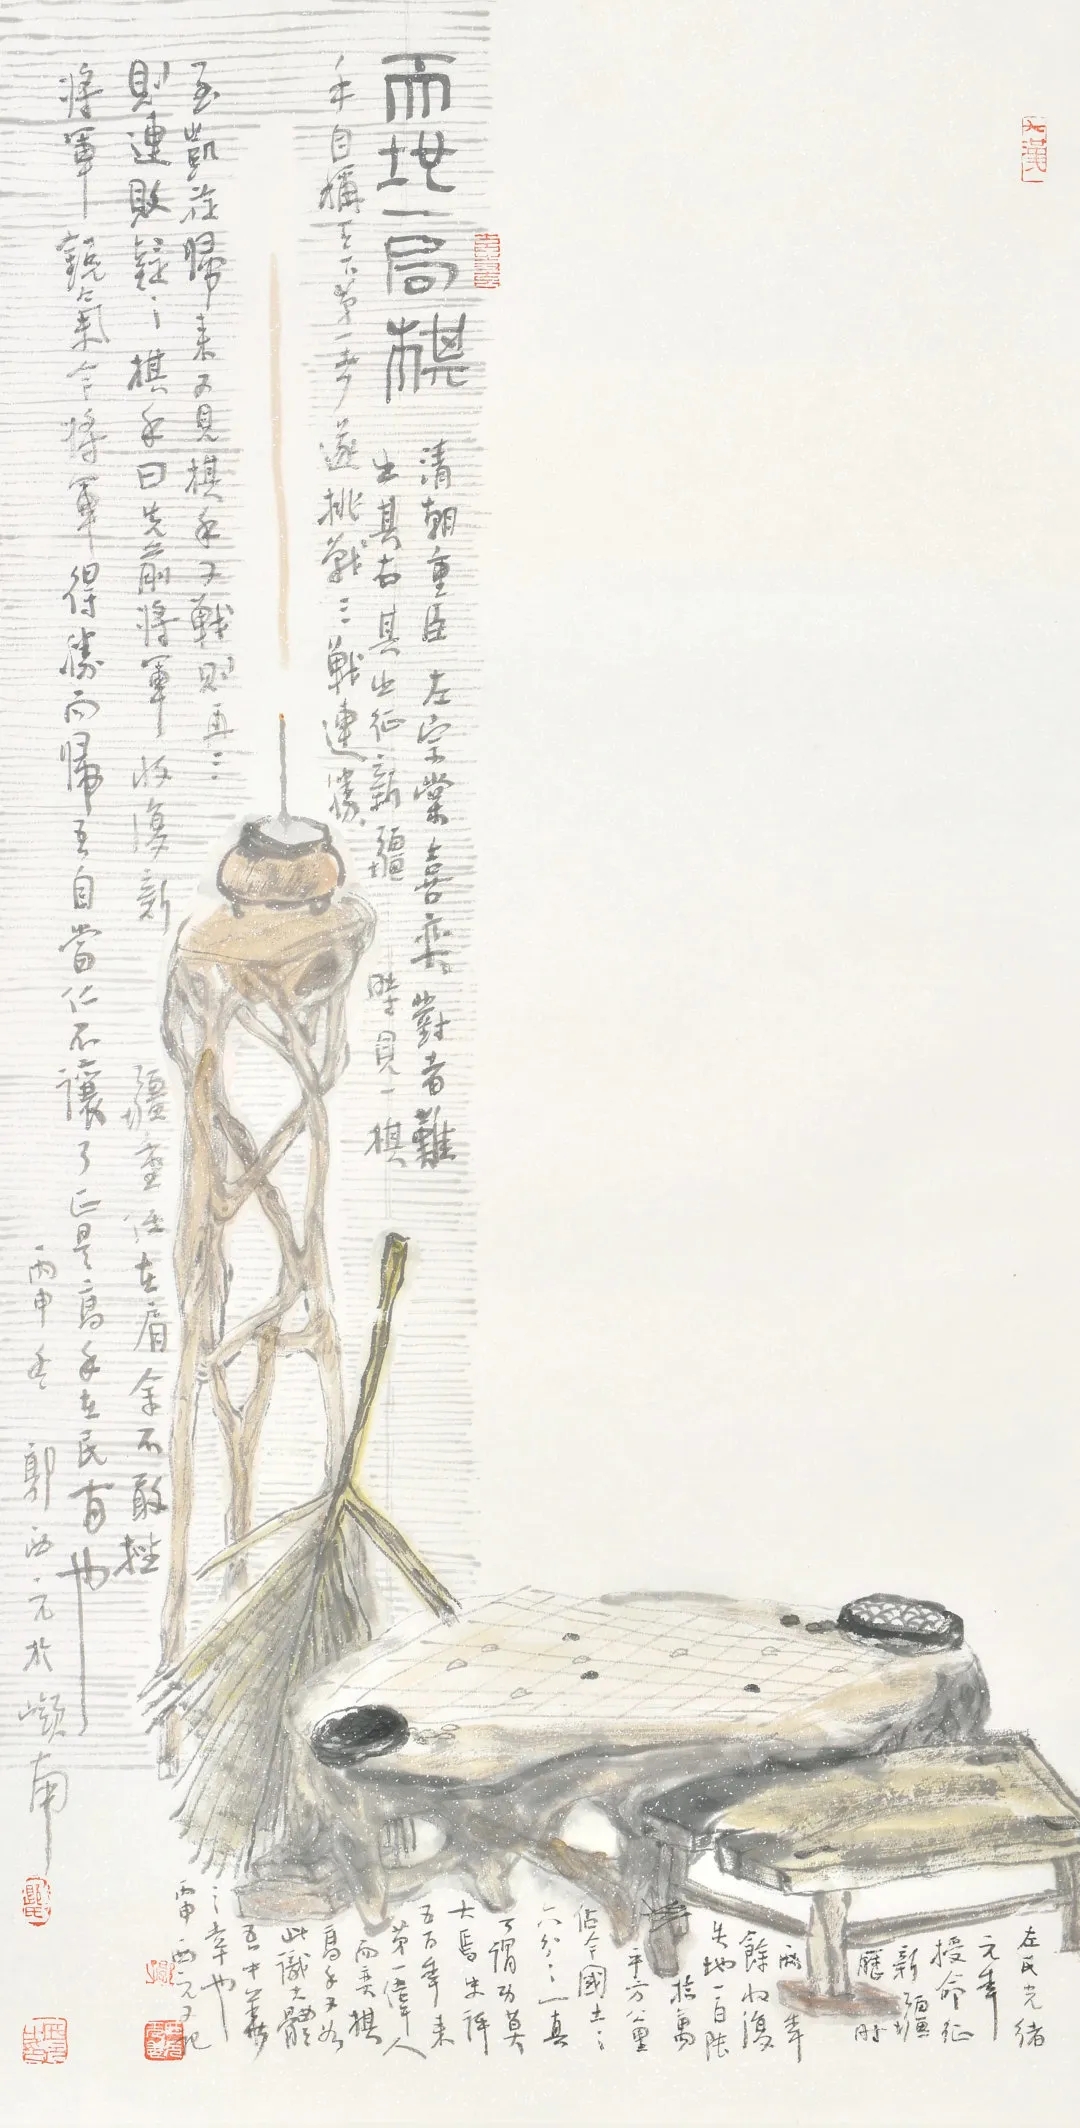 天地一局棋
清朝重臣左宗棠喜弈對者難
出其右其出征新疆時見一棋
手自稱天下第一奇遂挑戰三戰連勝
至凱旋歸來又見棋手又戰則再三
則連敗疑之棋手曰先前將軍收復新疆重任在肩余不敢挫
將軍銳氣今將軍得勝而歸吾自當仁不讓了正是高手在民間也
丙申冬郭西元於嶺南
左氏光緒
元年
授命征
新疆
歷時
兩年
餘收復
失地一百陸
拾萬
平方公里
佔今國土之
六分之一真
可謂功莫
大焉史評
五百年來
第一偉人
而弈棋
高手又如
此識大體
吾中華
之幸也
丙申西元又記